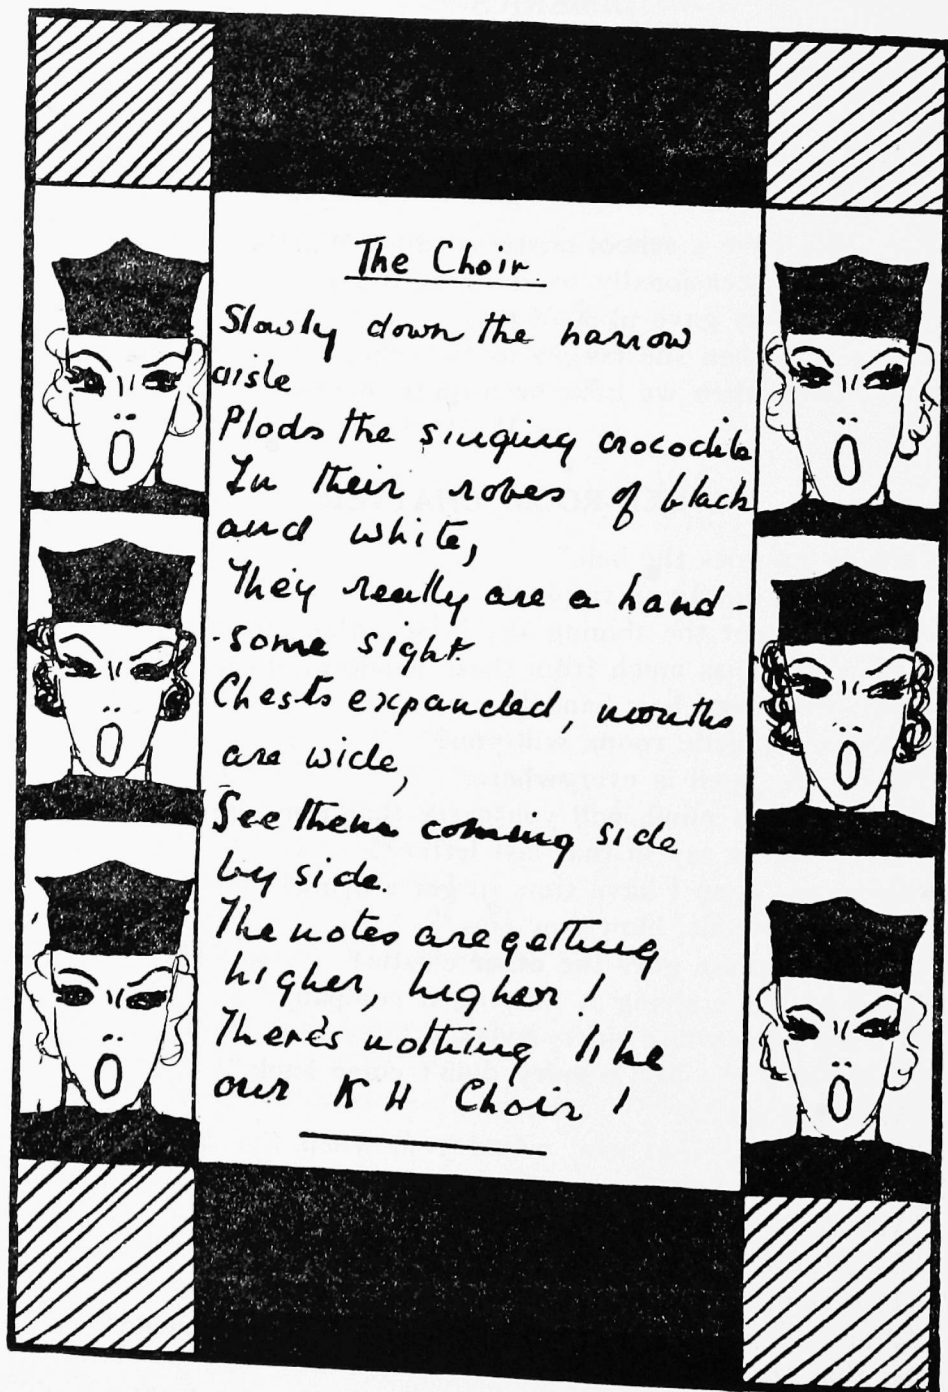 The Choir
Slowly down the narrow
aisle
Plods the singing crocodile
In their robes of black
and white,
They really are a hand-
-some sight
Chests expanded, mouths
are wide,
See them coming side
by side.
The notes are getting
higher, higher!
There's nothing like
our K H Choir!